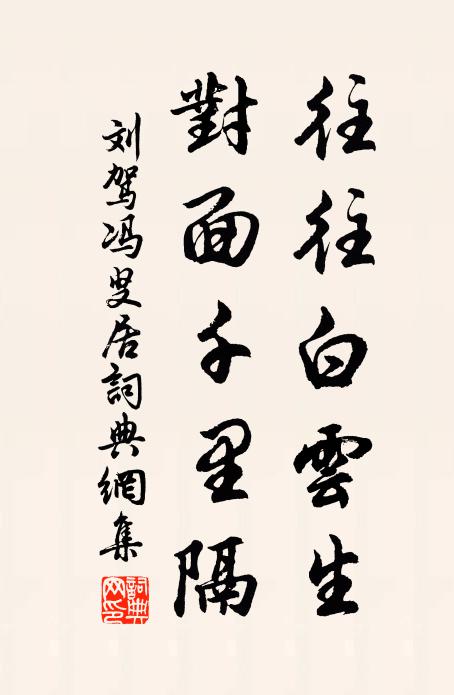 往往白雲生
對面千里隔
刘驾冯叟居詞典網集
詞典網印